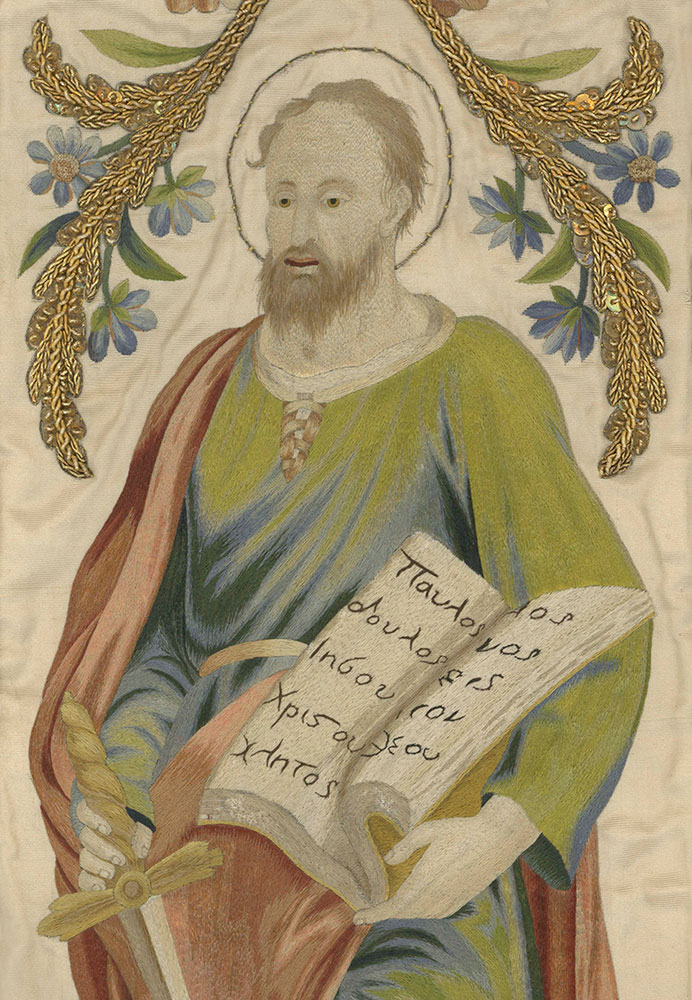 Παυλος
δουλος
Ιησου
Χριϛου
χλητος
λος
νος
εις
τον
ϑεου